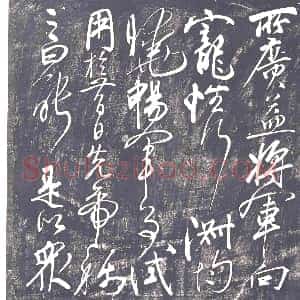 所廣益將軍向
寵性行淑均
曉暢軍事試
用於昔日先帝稱
之曰能是以眾